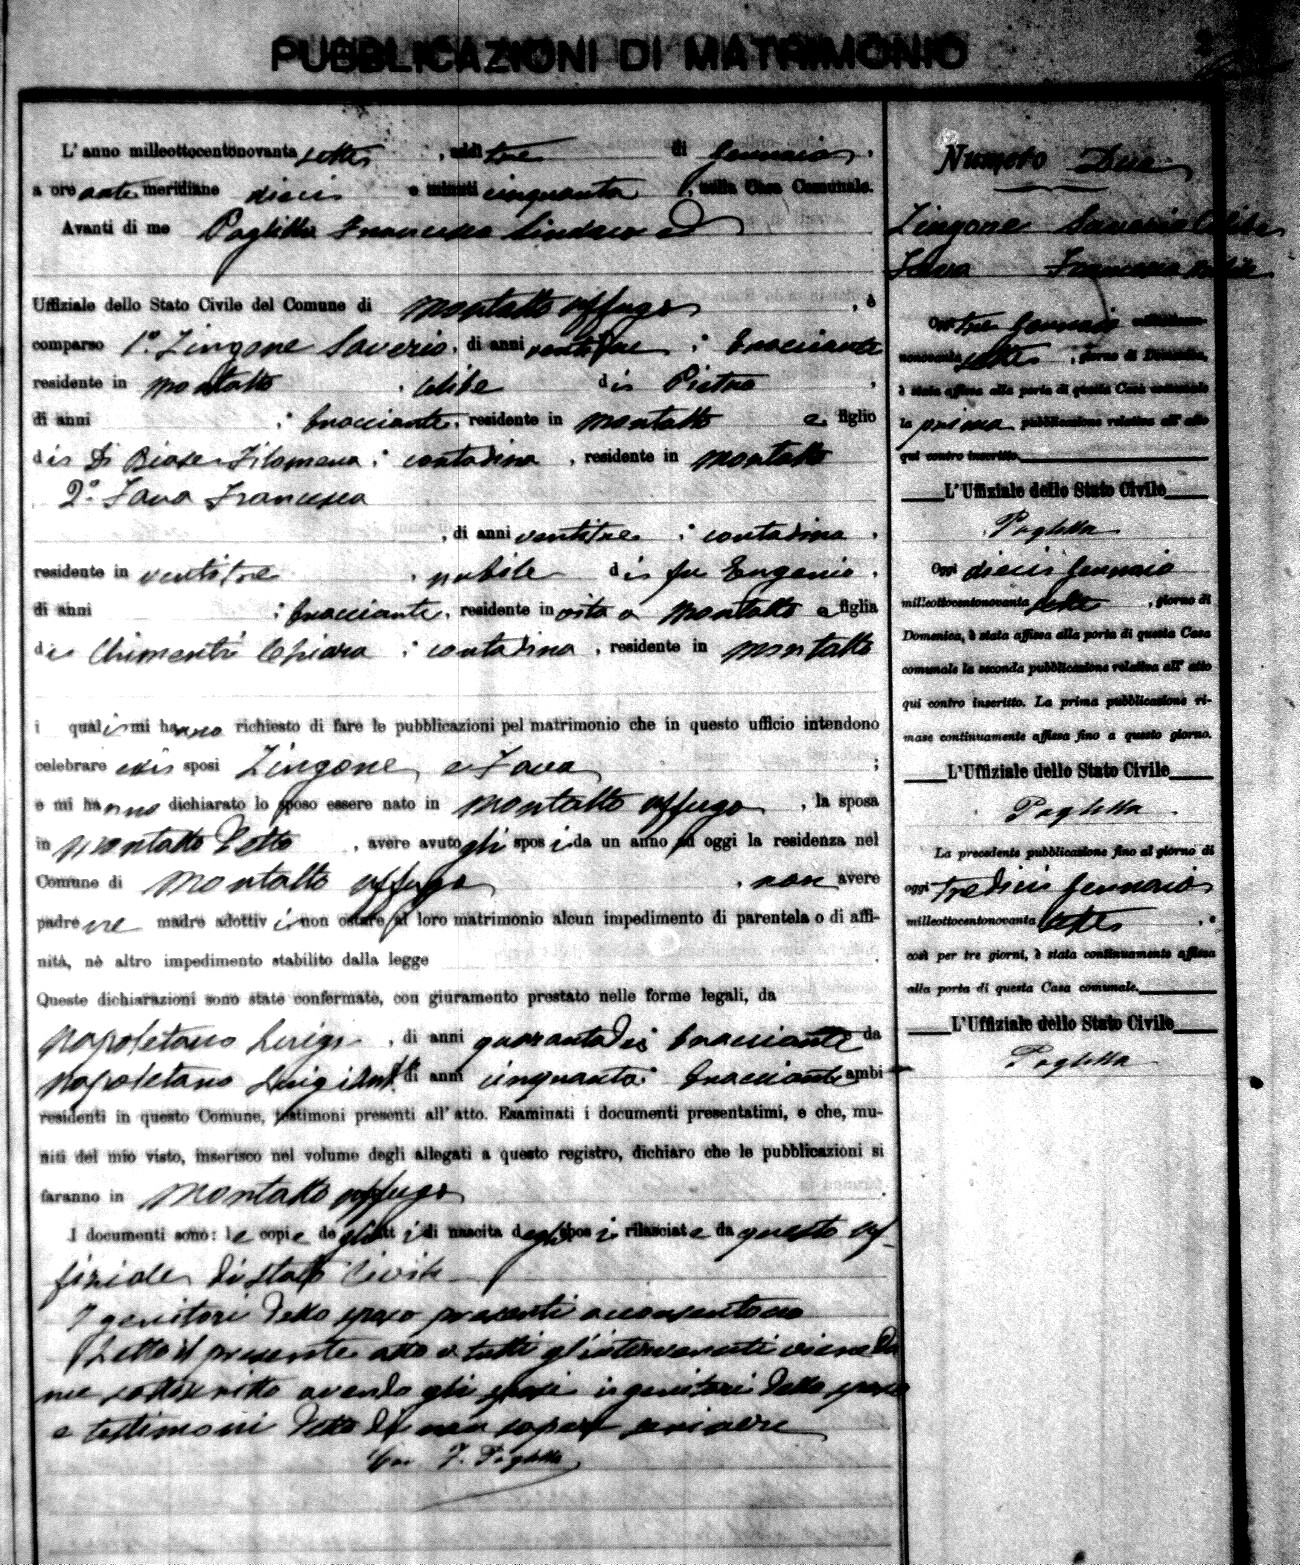 PUBBLICAZIONI DI MATRIMONIO
L'anno milleottocentonovanta sette, addì tre di Gennaio,
a ore ante meridiane dieci e minuti cinquanta, nella Casa Comunale.
Avanti di me Paglilla Francesco Sindaco ed
Uffiziale dello Stato Civile del Comune di Montalto Uffugo, è
comparso 1° Zingone Saverio, di anni ventidue; bracciante
residente in Montalto, celibe di Pietro,
di anni ; bracciante, residente in Montalto e figlio
di Di Biase Filomena; contadina, residente in Montalto
2° Fava Francesca
, di anni ventitre; contadina,
residente in ventitre, nubile di fu Eugenio,
di anni ; bracciante, residente in vita a Montalto e figlia
di Chimenti Chiara; contadina, residente in Montalto
i quali mi hanno richiesto di fare le pubblicazioni pel matrimonio che in questo ufficio intendono
celebrare essi sposi Zingone e Fava;
e mi hanno dichiarato lo sposo essere nato in Montalto Uffugo, la sposa
in Montalto detto, avere avuto gli sposi da un anno ad oggi la residenza nel
Comune di Montalto Uffugo, non avere
padre ne madre adottivi non ostare al loro matrimonio alcun impedimento di parentela o di affi-
nità, nè altro impedimento stabilito dalla legge
Queste dichiarazioni sono state confermate, con giuramento prestato nelle forme legali, da
Napoletano Luigi, di anni quarantadue bracciante da
Napoletano Luigi di anni cinquanta; bracciante ambi
residenti in questo Comune, testimoni presenti all'atto. Esaminati i documenti presentatimi, e che, mu-
niti del mio visto, inserisco nel volume degli allegati a questo registro, dichiaro che le pubblicazioni si
faranno in Montalto Uffugo
I documenti sono: le copie degli atti di nascita degli sposi rilasciate da questo uf-
fiziale di stato Civile
I genitori dello sposo presenti acconsentono
Letto il presente atto a tutti gl'intervenuti viene da
me sottoscritto avendo gli sposi i genitori dello sposo
e testimoni detto di non saper scrivere
F. Paglilla
Numero Due
Zingone Saverio Celibe
Fava Francesca Nubile
Oggi tre Gennaio milleotto-
nonovanta sette, giorno di Domenica,
è stata affissa alla porta di questa Casa comunale
la prima pubblicazione relativa all'atto
qui contro inscritto.
L'Uffiziale dello Stato Civile
Paglilla
Oggi dieci Gennaio
milleottocentonovanta sette, giorno di
Domenica, è stata affissa alla porta di questa Casa
comunale la seconda pubblicazione relativa all'atto
qui contro inscritto. La prima pubblicazione ri-
mase continuamente affissa fino a questo giorno.
L'Uffiziale dello Stato Civile
Paglilla
La precedente pubblicazione fino al giorno di
oggi tredici Gennaio
milleottocentonovanta sette, e
così per tre giorni, è stata continuamente affissa
alla porta di questa Casa comunale.
L'Uffiziale dello Stato Civile
Paglilla